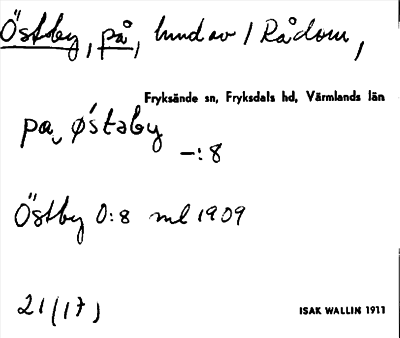 Östby, på, hmd av / Rådom,
Fryksände sn, Fryksdals hd, Värmlands län
pa, ǿstaby
–:8
Östby 0:8 ml 1909
21/17)
ISAK WALLIN 1911